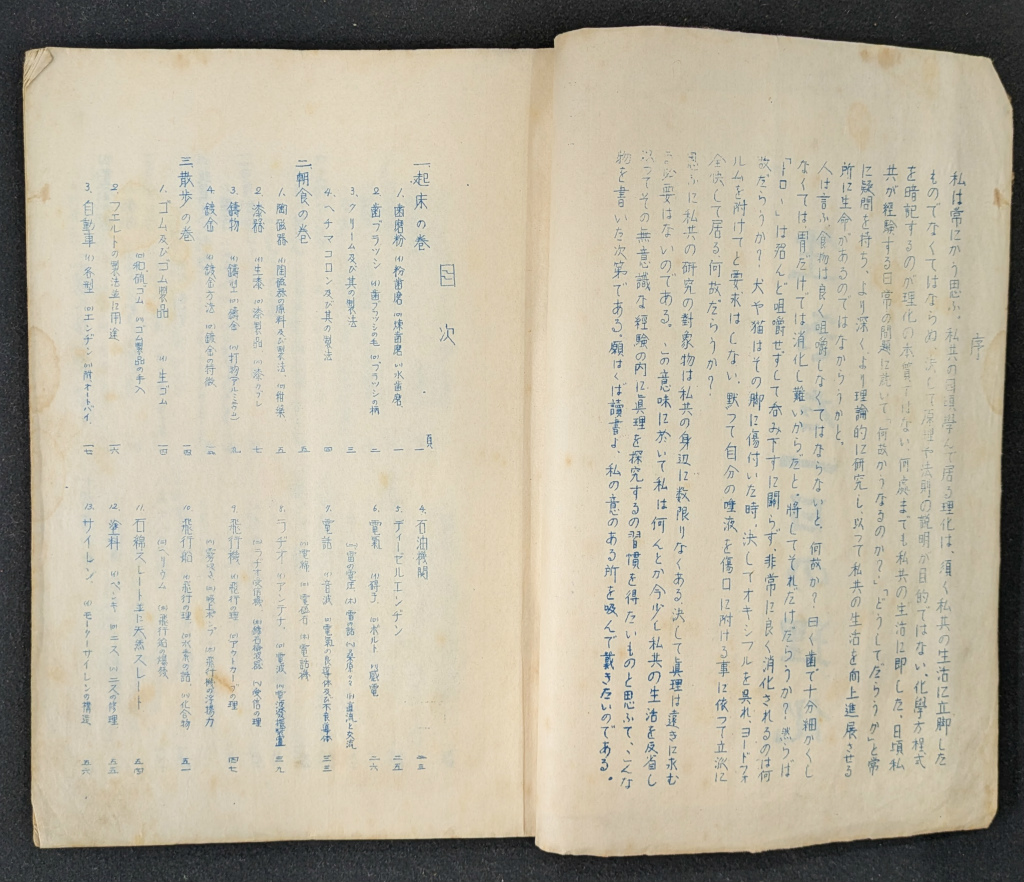 序
私は常にかう思ふ、私共の日頃學んで居る理化は、須く私共の生活に立脚した
ものでなくてはならぬ、決して原理や法則の説明が目的ではない、化學方程式
を暗記するのが理化の本質ではない 何處までも私共の生活に即した、日頃私
共が經驗する日常の問題に就いて「何故かうなるのか?」「どうしてだらうか」と常
に疑問を持ち、より深くより理論的に研究し、以つて私共の生活を向上進展させる
所に生命があるのではなからうかと。
人は言ふ「食物は良く咀嚼しなくてはならない」と、何故か? 曰く「歯で十分細かくし
なくては胃だけでは消化し難いから」だと、將してそれだけだらうか? 然らば
「トロヽ」は殆んど咀嚼せずして呑み下すに關らず、非常に良く消化されるのは何
故だらうか? 犬や猫はその脚に傷付いた時、決してオキシフルを呉れ、ヨードフォ
ルムを附けてと要求はしない、黙つて自分の唾液を傷口に附ける事に依つて立派に
全快して居る、何故だらうか?
思ふに私共の研究の對象物は私共の身辺に数限りなくある、決して眞理は遠きに求む
る必要はないのである。この意味に於いて私は何んとか今少し私共の生活を反省し
以つてその無意識な經驗の内に眞理を探究するの習慣を得たいものと思ふて、こんな
物を書いた次第である、願はくば讀書よ、私の意のある所を汲んで戴きたいのである。
目次
頁
一、起床の巻
1. 歯磨粉 (イ)粉歯磨 (ロ)煉歯磨 (ハ)水歯磨、 一
2. 歯ブラッシ (イ)歯ブラッシの毛 (ロ)ブラッシの柄 二
3. クリーム及び其の製法 三
4. ヘチマコロン及び其の製法 四
二、朝食の巻 五
1. 陶磁器 (イ)陶磁器の原料及び製法、(ロ)柑薬 五
2. 漆器 (イ)生漆 (ロ)漆料品 (ハ)漆カブレ 七
3. 鋳物 (イ)鋳型 (ロ)鋳金 (ハ)打物 九
4. 鍍金 (イ)鍍金方法 (ロ)鍍金の特徴
三、散歩の巻 一四
1. ゴム及びゴム製品 (イ)生ゴム 一四
(ロ)和硫ゴム (ハ)ゴム製品の手入
2. フエルトの製法並に用途 一六
3. 自動車 (イ)各型 (ロ)エンヂン (ハ)附オートバイ、 一七
4. 石油機関 二三
5. ディーゼルエンヂン 二五
6. 電氣 (イ)碍子 (ロ)ボルト (ハ)感電 二六
(ニ)雷の電圧 (ホ)雷の話 (ト)直流と交流
7. 電話 (イ)音波 (ロ)電氣の良導体及び不良導体 三三
(ハ)電線 (ニ)電信 (ホ)電話機
8. ラヂオ (イ)アンテナ、(ロ)電波 三九
(ニ)ラヂオ受信機 (ホ)鑛石檢波器 (ヘ)受信の理
9. 飛行機 (イ)飛行の理 (ロ)アウトカーブの理 四七
10. 飛行船 (イ)飛行の理 (ロ)水素の話 (ハ)化合物 五一
(ニ)ヘリウム (ホ)飛行船の爆發
11. 石綿スレート並に天然スレート 五四
12. 塗料 (イ)ペンキ (ロ)ニス (ハ)ニスの修理 五五
13. サイレン、 (イ)モーターサイレンの構造、 五六